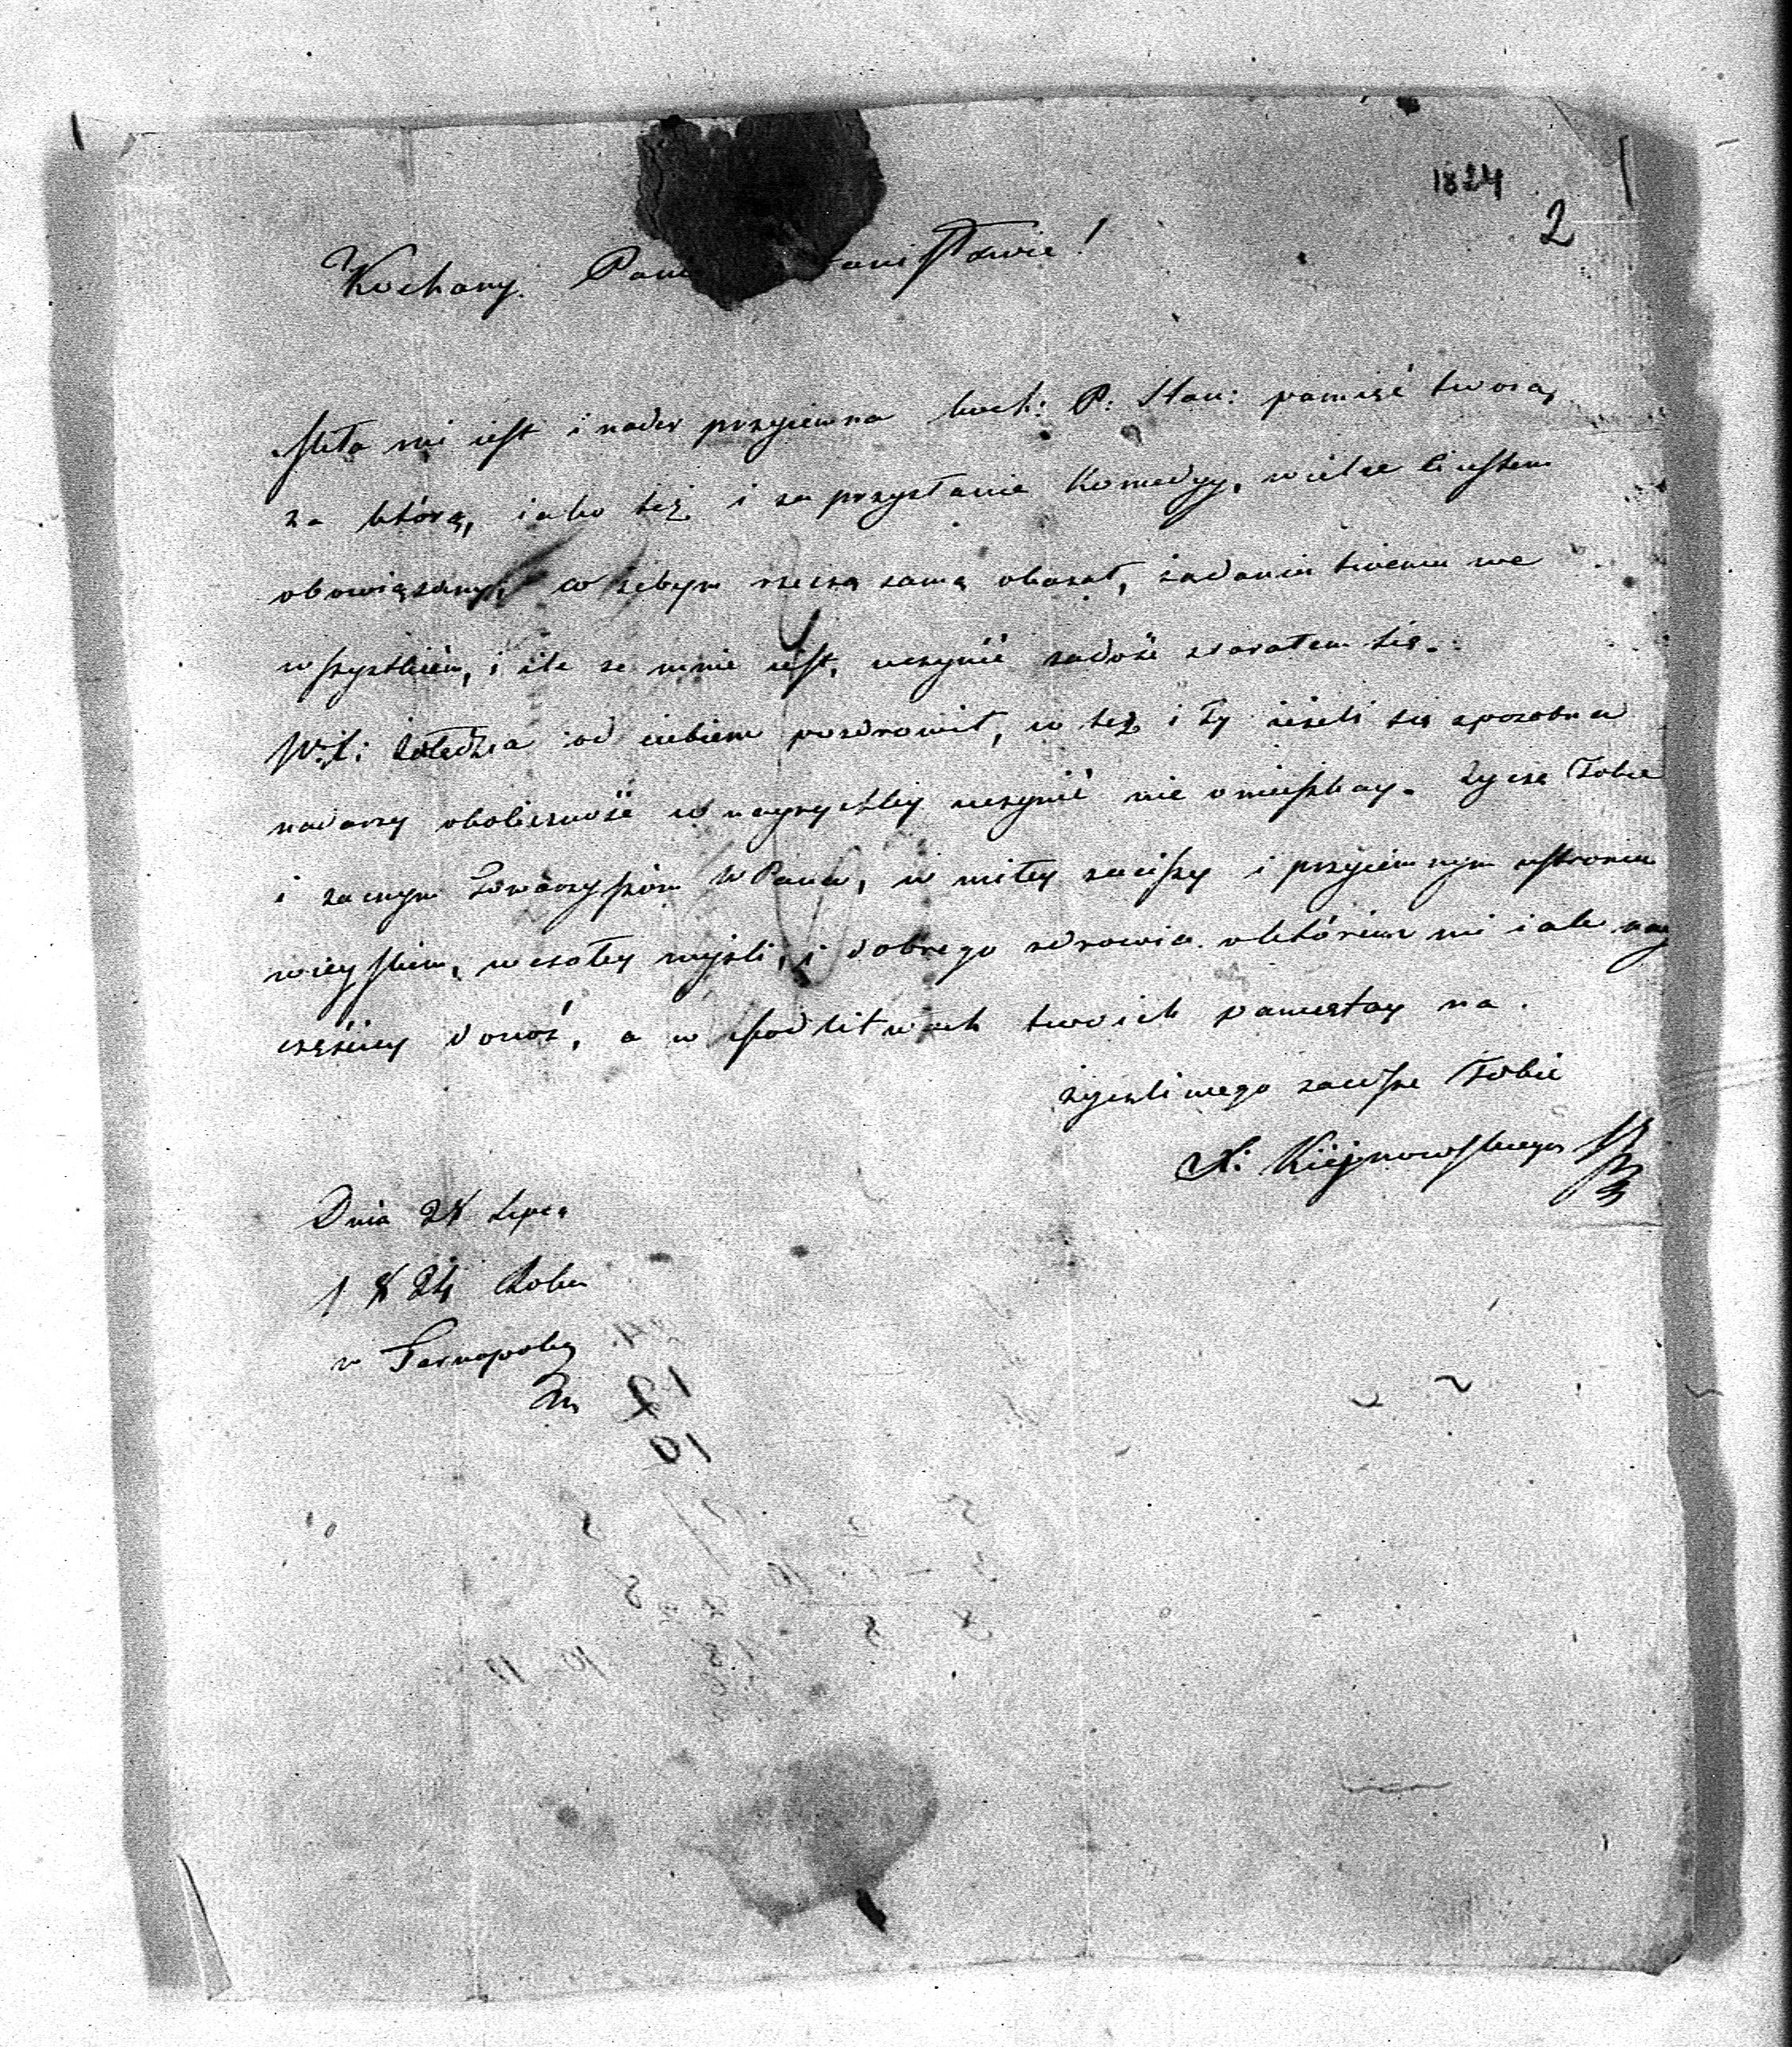 1824
2
Kochany Pan anisławie!
Miła mi iest i nader przyiemna koch: P: Stan: pamięć twoia,
za którą, iako też i za przysłanie Komedyy, wielce Ci iestem
obowiązany, co żebym rzeczą samą okazał, żądaniu twemu we
wszystkiém, i ile ze mnie iest, uczynić zadość starałem się.
od ciebiem pozdrowił, co też i Ty ieżeli się sposobna
nadarzy okoliczność iaknayrychley uczynić nie omieszkay. Życzę Tobie
i zacnym Towarzyszóm WPana, w miłey zaciszy i przyiemnym ustroniu
wieyskiem, wesołey myśli, i dobrego zdrowia o którem mi iak nay
częściey donoś, a w modlitwach twoich pamiętay na
życzliwego zawsze Tobie
X: Kieynowskiego
Dnia 28 Lipca
1824 Roku
w Tarnopolu
12
10